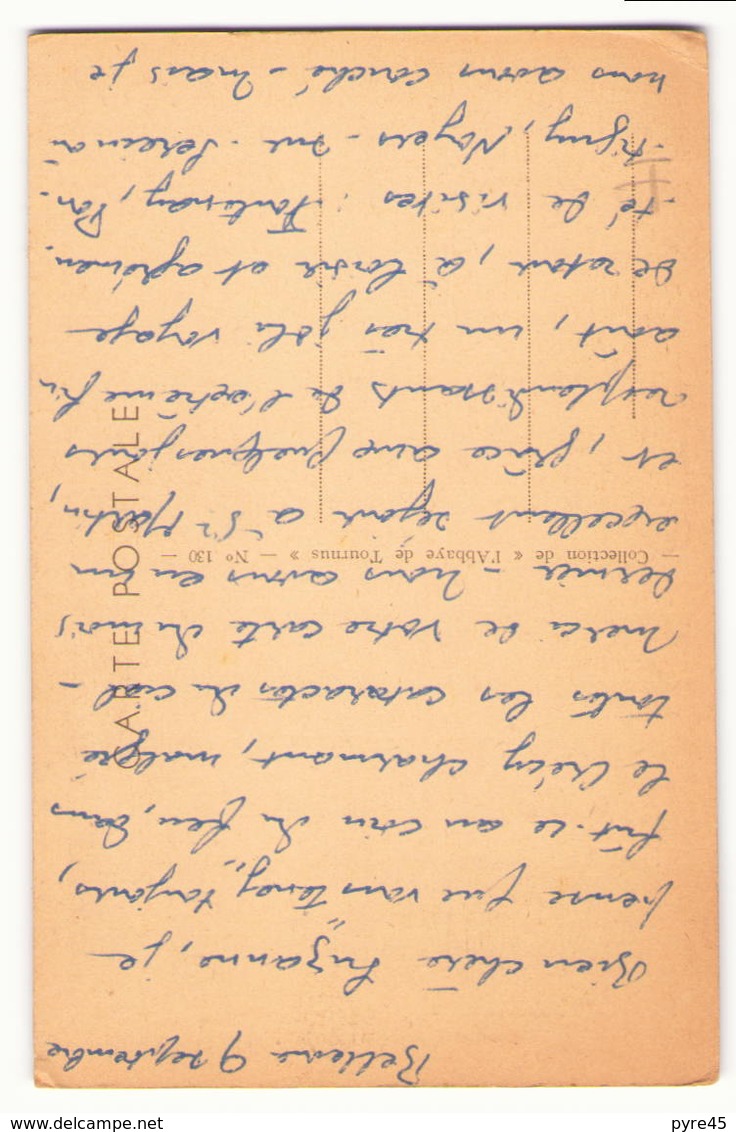 Bellevue 9 septembre
Bien chère Suzanne, je
pense que vous "tenez" toujours,
fût-ce au coin du feu, dans
le Crécy charmant, malgré
toutes les cataractes du ciel -
merci de votre carte du mois
dernier - nous avons eu un
excellent séjour à St Martin,
et, grâce aux quelques jours
resplendissants de l'extrême fin
août, un très joli voyage
de retour, à loisir et agrémen-
-té de visites : Fontenay, Pon-
-tigny, Noyers - sur - Serein où
nous avons couché - mais je
CARTE POSTALE
— Collection de « l'Abbaye de Tournus » — N° 130 —
www.delcampe.net
pyre45